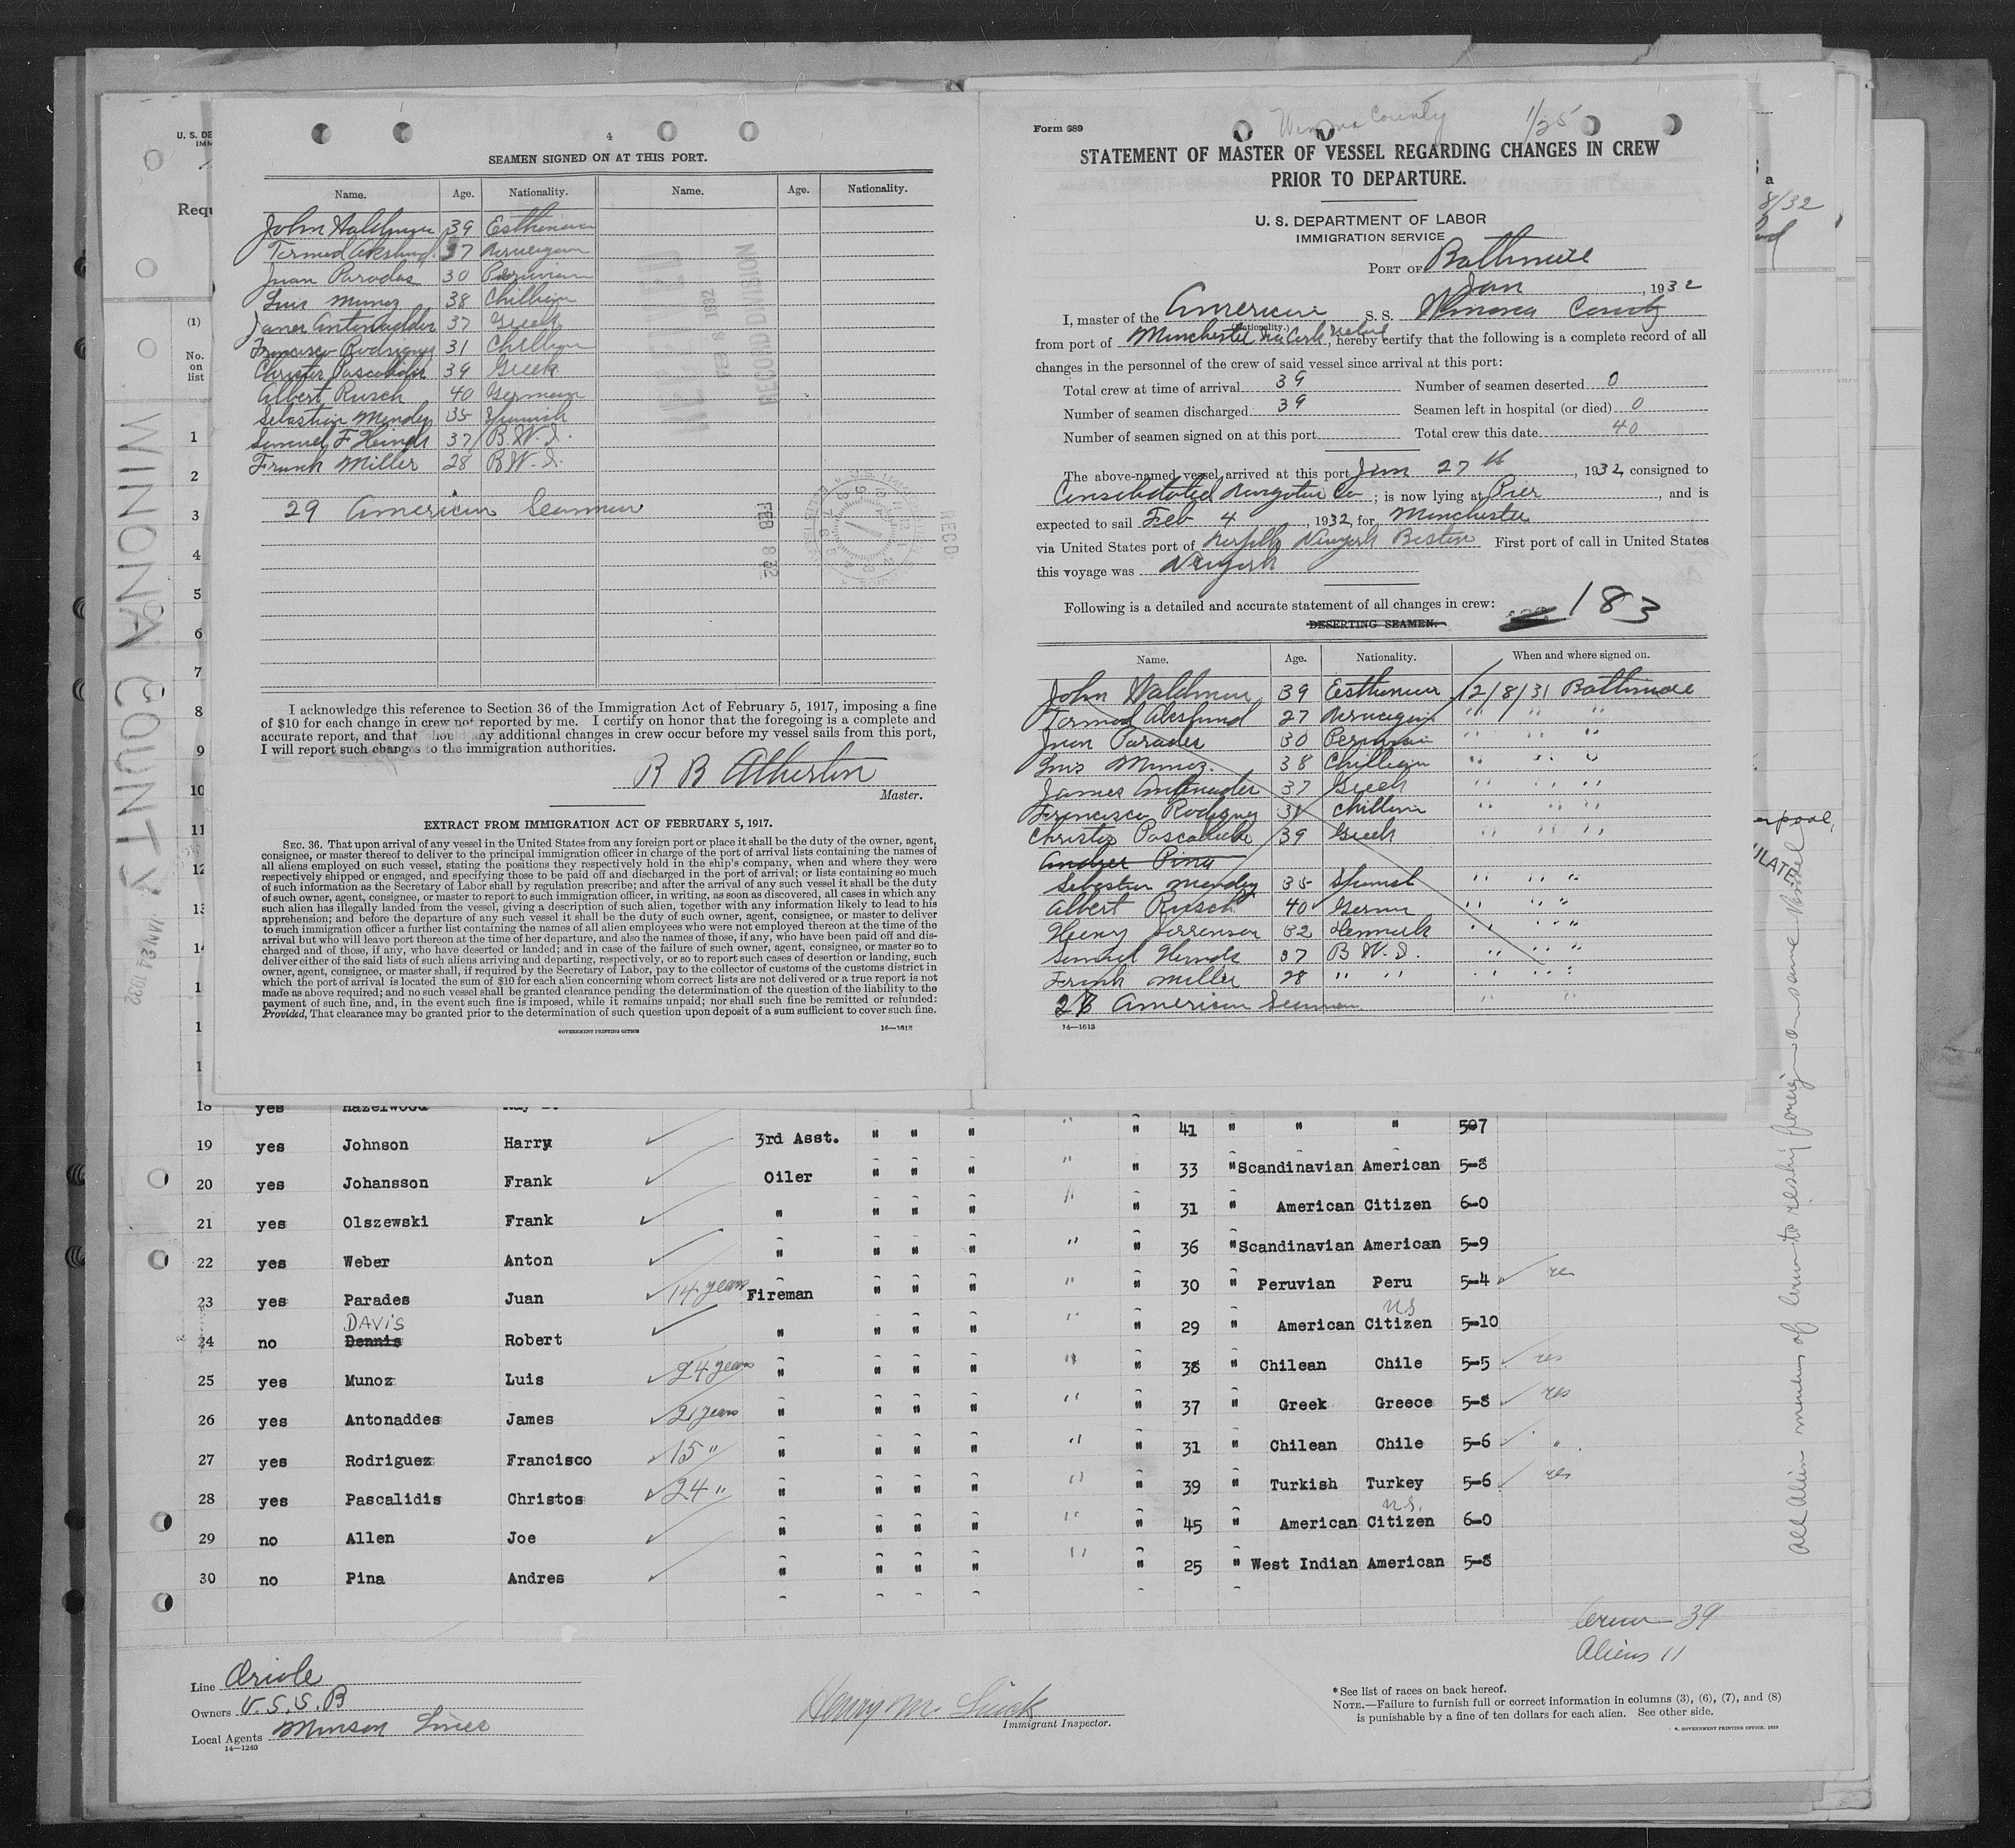 4
SEAMEN SIGNED ON AT THIS PORT.
Name. Age. Nationality. Name. Age. Nationality.
John Waldman 39 Esthonian
27 Norwegian
Juan Parades 30 Peruvian
Luis Munoz 38 Chillian
37 Greek
Francisco Rodriguez 31 Chillian
39 Greek
Albert Rusch 40 German
Sebastian Mendez 35 Spanish
37 B.W.I.
Frank Miller 28 B.W.I.
29 American Seamen
SECOND DIVISION
FEB 9 1932
FEB 8 32
RECD
I acknowledge this reference to Section 36 of the Immigration Act of February 5, 1917, imposing a fine
of $10 for each change in crew not reported by me. I certify on honor that the foregoing is a complete and
accurate report, and that should any additional changes in crew occur before my vessel sails from this port,
I will report such changes to the immigration authorities.
R B Atherton
Master.
EXTRACT FROM IMMIGRATION ACT OF FEBRUARY 5, 1917.
SEC. 36. That upon arrival of any vessel in the United States from any foreign port or place it shall be the duty of the owner, agent,
consignee, or master thereof to deliver to the principal immigration officer in charge of the port of arrival lists containing the names of
all aliens employed on such vessel, stating the positions they respectively hold in the ship's company, when and where they were
respectively shipped or engaged, and specifying those to be paid off and discharged in the port of arrival; or lists containing so much
of such information as the Secretary of Labor shall by regulation prescribe; and after the arrival of any such vessel it shall be the duty
of such owner, agent, consignee, or master to report to such immigration officer, in writing, as soon as discovered, all cases in which any
such alien has illegally landed from the vessel, giving a description of such alien, together with any information likely to lead to his
apprehension; and before the departure of any such vessel it shall be the duty of such owner, agent, consignee, or master to deliver
to such immigration officer a further list containing the names of all alien employees who were not employed thereon at the time of the
arrival but who will leave port thereon at the time of her departure, and also the names of those, if any, who have been paid off and dis-
charged and of those, if any, who have deserted or landed; and in case of the failure of such owner, agent, consignee, or master so to
deliver either of the said lists of such aliens arriving and departing, respectively, or so to report such cases of desertion or landing, such
owner, agent, consignee, or master shall, if required by the Secretary of Labor, pay to the collector of customs of the customs district in
which the port of arrival is located the sum of $10 for each alien concerning whom correct lists are not delivered or a true report is not
made as above required; and no such vessel shall be granted clearance pending the determination of the question of the liability to the
payment of such fine, and, in the event such fine is imposed, while it remains unpaid; nor shall such fine be remitted or refunded:
Provided, That clearance may be granted prior to the determination of such question upon deposit of a sum sufficient to cover such fine.
GOVERNMENT PRINTING OFFICE 14—1613
Form 689
Winona County 1/25
STATEMENT OF MASTER OF VESSEL REGARDING CHANGES IN CREW
PRIOR TO DEPARTURE.
U. S. DEPARTMENT OF LABOR
IMMIGRATION SERVICE
PORT OF Baltimore
Jan, 1932
I, master of the American S. S. Winona County
(Nationality.)
from port of Manchester, hereby certify that the following is a complete record of all
changes in the personnel of the crew of said vessel since arrival at this port:
Total crew at time of arrival 39 Number of seamen deserted 0
Number of seamen discharged 39 Seamen left in hospital (or died) 0
Number of seamen signed on at this port Total crew this date 40
The above-named vessel arrived at this port Jan 27th, 1932, consigned to
Consolidated Navigation Co; is now lying at Pier, and is
expected to sail Feb 4, 1932, for Manchester
via United States port of Norfolk Newyork Boston First port of call in United States
this voyage was Newyork
Following is a detailed and accurate statement of all changes in crew: 183
DESERTING SEAMEN.
Name. Age. Nationality. When and where signed on.
John Waldman 39 Esthonian 12/8/31 Baltimore
27 Norwegian " " "
Juan Parades 30 Peruvian " " "
Luis Munoz 38 Chillian " " "
James 37 Greek " " "
Francisco Rodriguez 31 Chillian " " "
39 Greek " " "
Andres Pina
Sebastian Mendez 35 Spanish " " "
Albert Rusch 40 German " " "
Henry Jorrensen 32 Denmark " " "
Samuel 37 B.W.I. " " "
Frank Miller 28 " " " " "
American Seaman " "
14—1613
U. S. DE
IMM
Requ
(1)
No.
on
list
WINONA COUNTY
JAN 24 1932
1
2
3
4
5
6
7
8
9
10
11
12
13
14
1
1
1
8/32
18 yes Hazelwood
19 yes Johnson Harry 3rd Asst. " " " " " 41 " " " 5-7
20 yes Johansson Frank Oiler " " " " " 33 " Scandinavian American 5-8
21 yes Olszewski Frank " " " " " " 31 " American Citizen 6-0
22 yes Weber Anton " " " " " " 36 " Scandinavian American 5-9
23 yes Parades Juan 14 years Fireman " " " " " 30 " Peruvian Peru 5-4 res
24 no Dennis DAVIS Robert " " " " " " 29 " American Citizen us 5-10
25 yes Munoz Luis 24 years " " " " " " 38 " Chilean Chile 5-5 res
26 yes Antonaddes James 21 years " " " " " " 37 " Greek Greece 5-8 res
27 yes Rodriguez Francisco 15 " " " " " " " 31 " Chilean Chile 5-6 "
28 yes Pascalidis Christos 24 " " " " " " " 39 " Turkish Turkey 5-6 res
29 no Allen Joe " " " " " " 45 " American Citizen u.s. 6-0
30 no Pina Andres " " " " " " 25 " West Indian American 5-8
All Alien members of crew to reship foreign on same vessel
Crew — 39
Aliens 11
Line Oriole
Owners U.S.S.B
Local Agents Munson Lines
14—1240
Immigrant Inspector.
*See list of races on back hereof.
NOTE.—Failure to furnish full or correct information in columns (3), (6), (7), and (8)
is punishable by a fine of ten dollars for each alien. See other side.